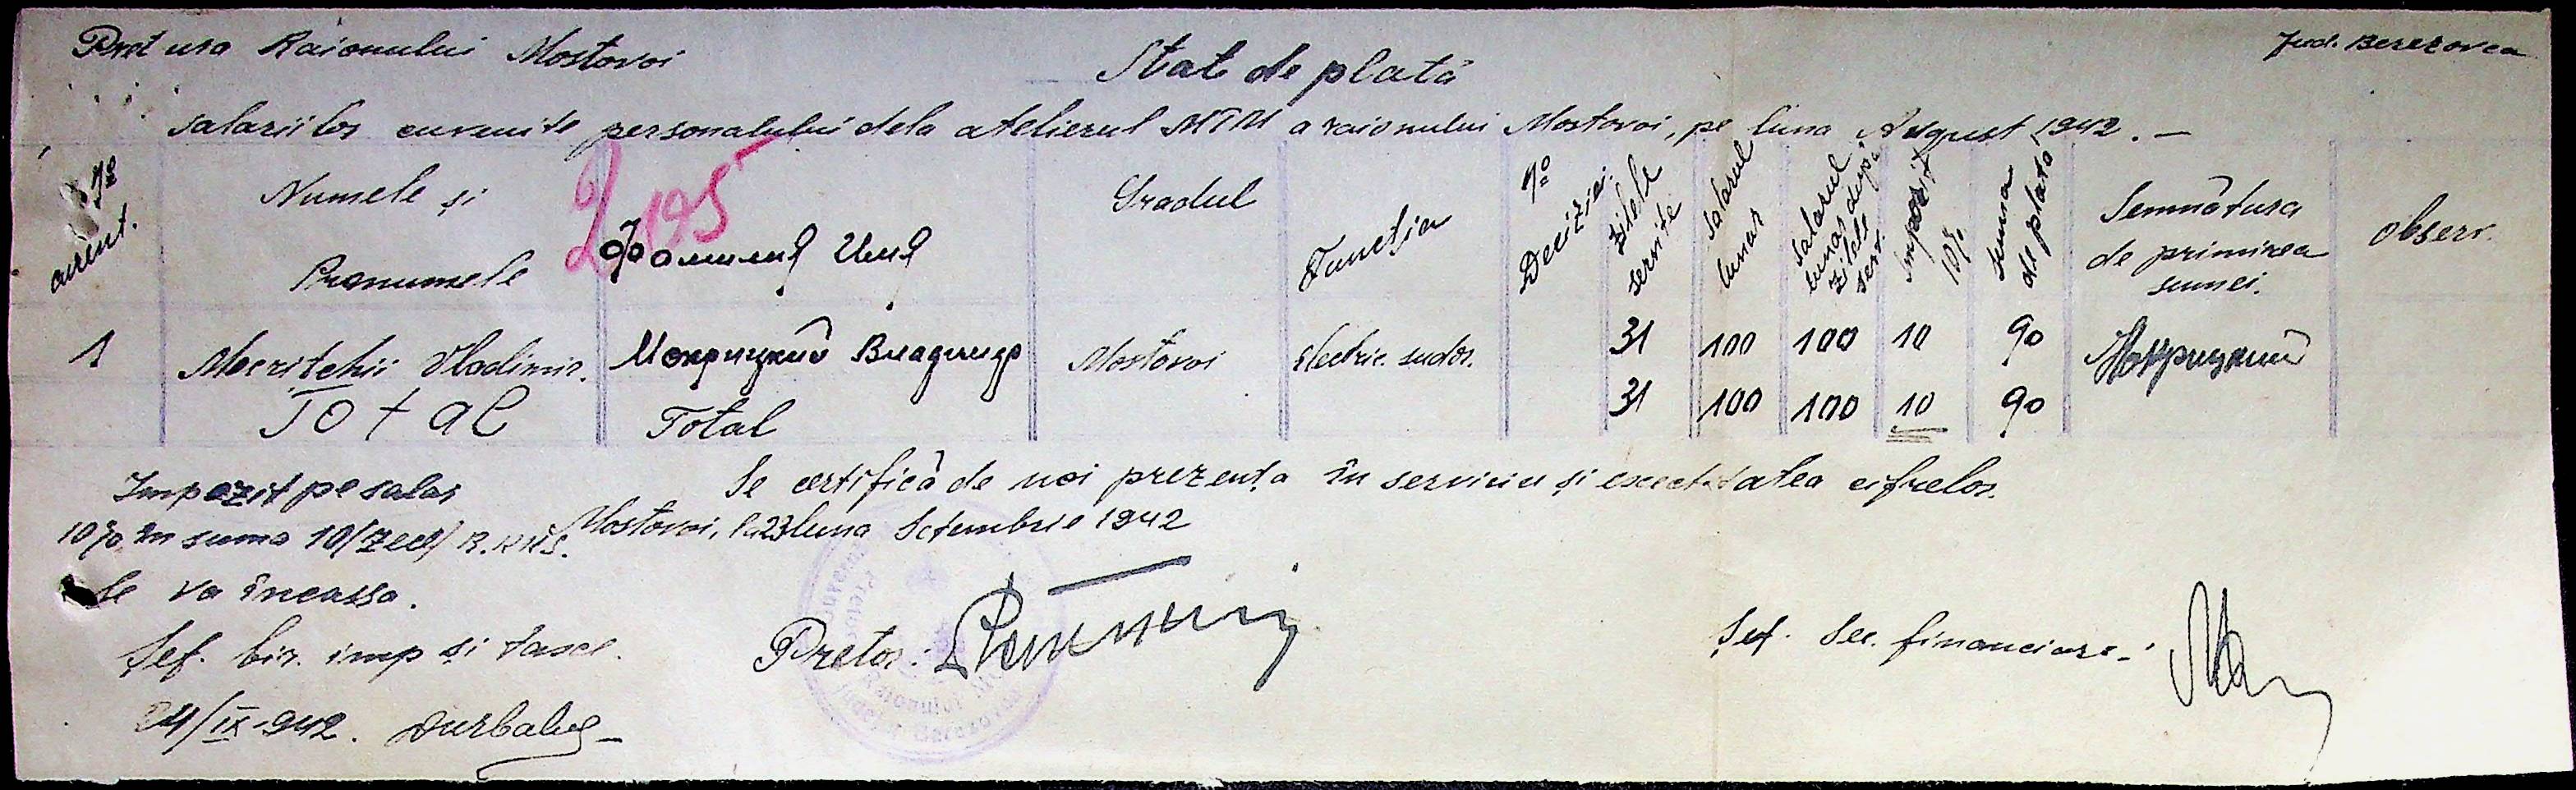 Pretura Raionului Mostovoi
Jud. Berezovca
Stat de plată
salariilor cuvenite personalului dela atelierul MTM a raionului Mostovoi, pe luna August 1942. —
No curent.
Numele și Pronumele
Фамилия Имя
Gradul
Functia
No Deciziei.
Zilele servite
Salarul lunar
Salarul lunar după zilele serv.
Impozit 10%
Suma de plata
Semnătura de primirea sumei.
Observ.
2 195
1 Mocritchii Vladimir. Мокрицкий Владимир Mostovoi Electric. sudor. 31 100 100 10 90 Мокрицкий
Total Total 31 100 100 10 90
Se certifică de noi prezenta în serviciu și exectitatea cifrelor.
Mostovoi, la 23 luna Setembrie 1942
Impozit pe salar
10% în suma 10/zece/ R.K.K.S.
Se va încassa.
Șef. bir. imp și taxe.
24/IX-942.
Pretor:
Șef. Sec. financiare: